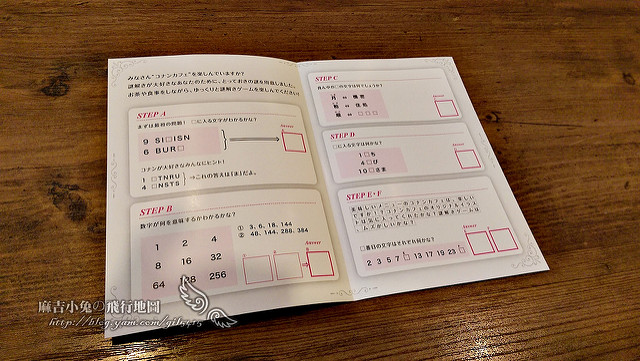 みなさん"コナンカフェ"を楽しんでいますか?
謎解きが大好きなあなたのために、とっておきの謎を用意しました。
お茶や食事をしながら、ゆっくりと謎解きゲームを楽しんでください!
STEP A
まずは最初の問題! □に入る文字がわかるかな?
9 SI□ISN
6 BUR□
Answer
コナンが大好きなみんなにヒント!
1 □TNRU
4 □NSTS
⇒これの答えは「ま」だよ。
STEP B
数字が何を意味するかわかるかな?
1 2 4
8 16 32
64 128 256
① 3, 6, 18, 144
② 48, 144, 288, 384
Answer
STEP C
Answer
STEP D
□に入る文字は何かな?
1 □ち
4 □び
10 □さま
Answer
STEP E・F
□番目の文字はそれぞれ何かな?
2 3 5 7 □ 13 17 19 23 □
Answer
麻吉小兔の飛行地圖